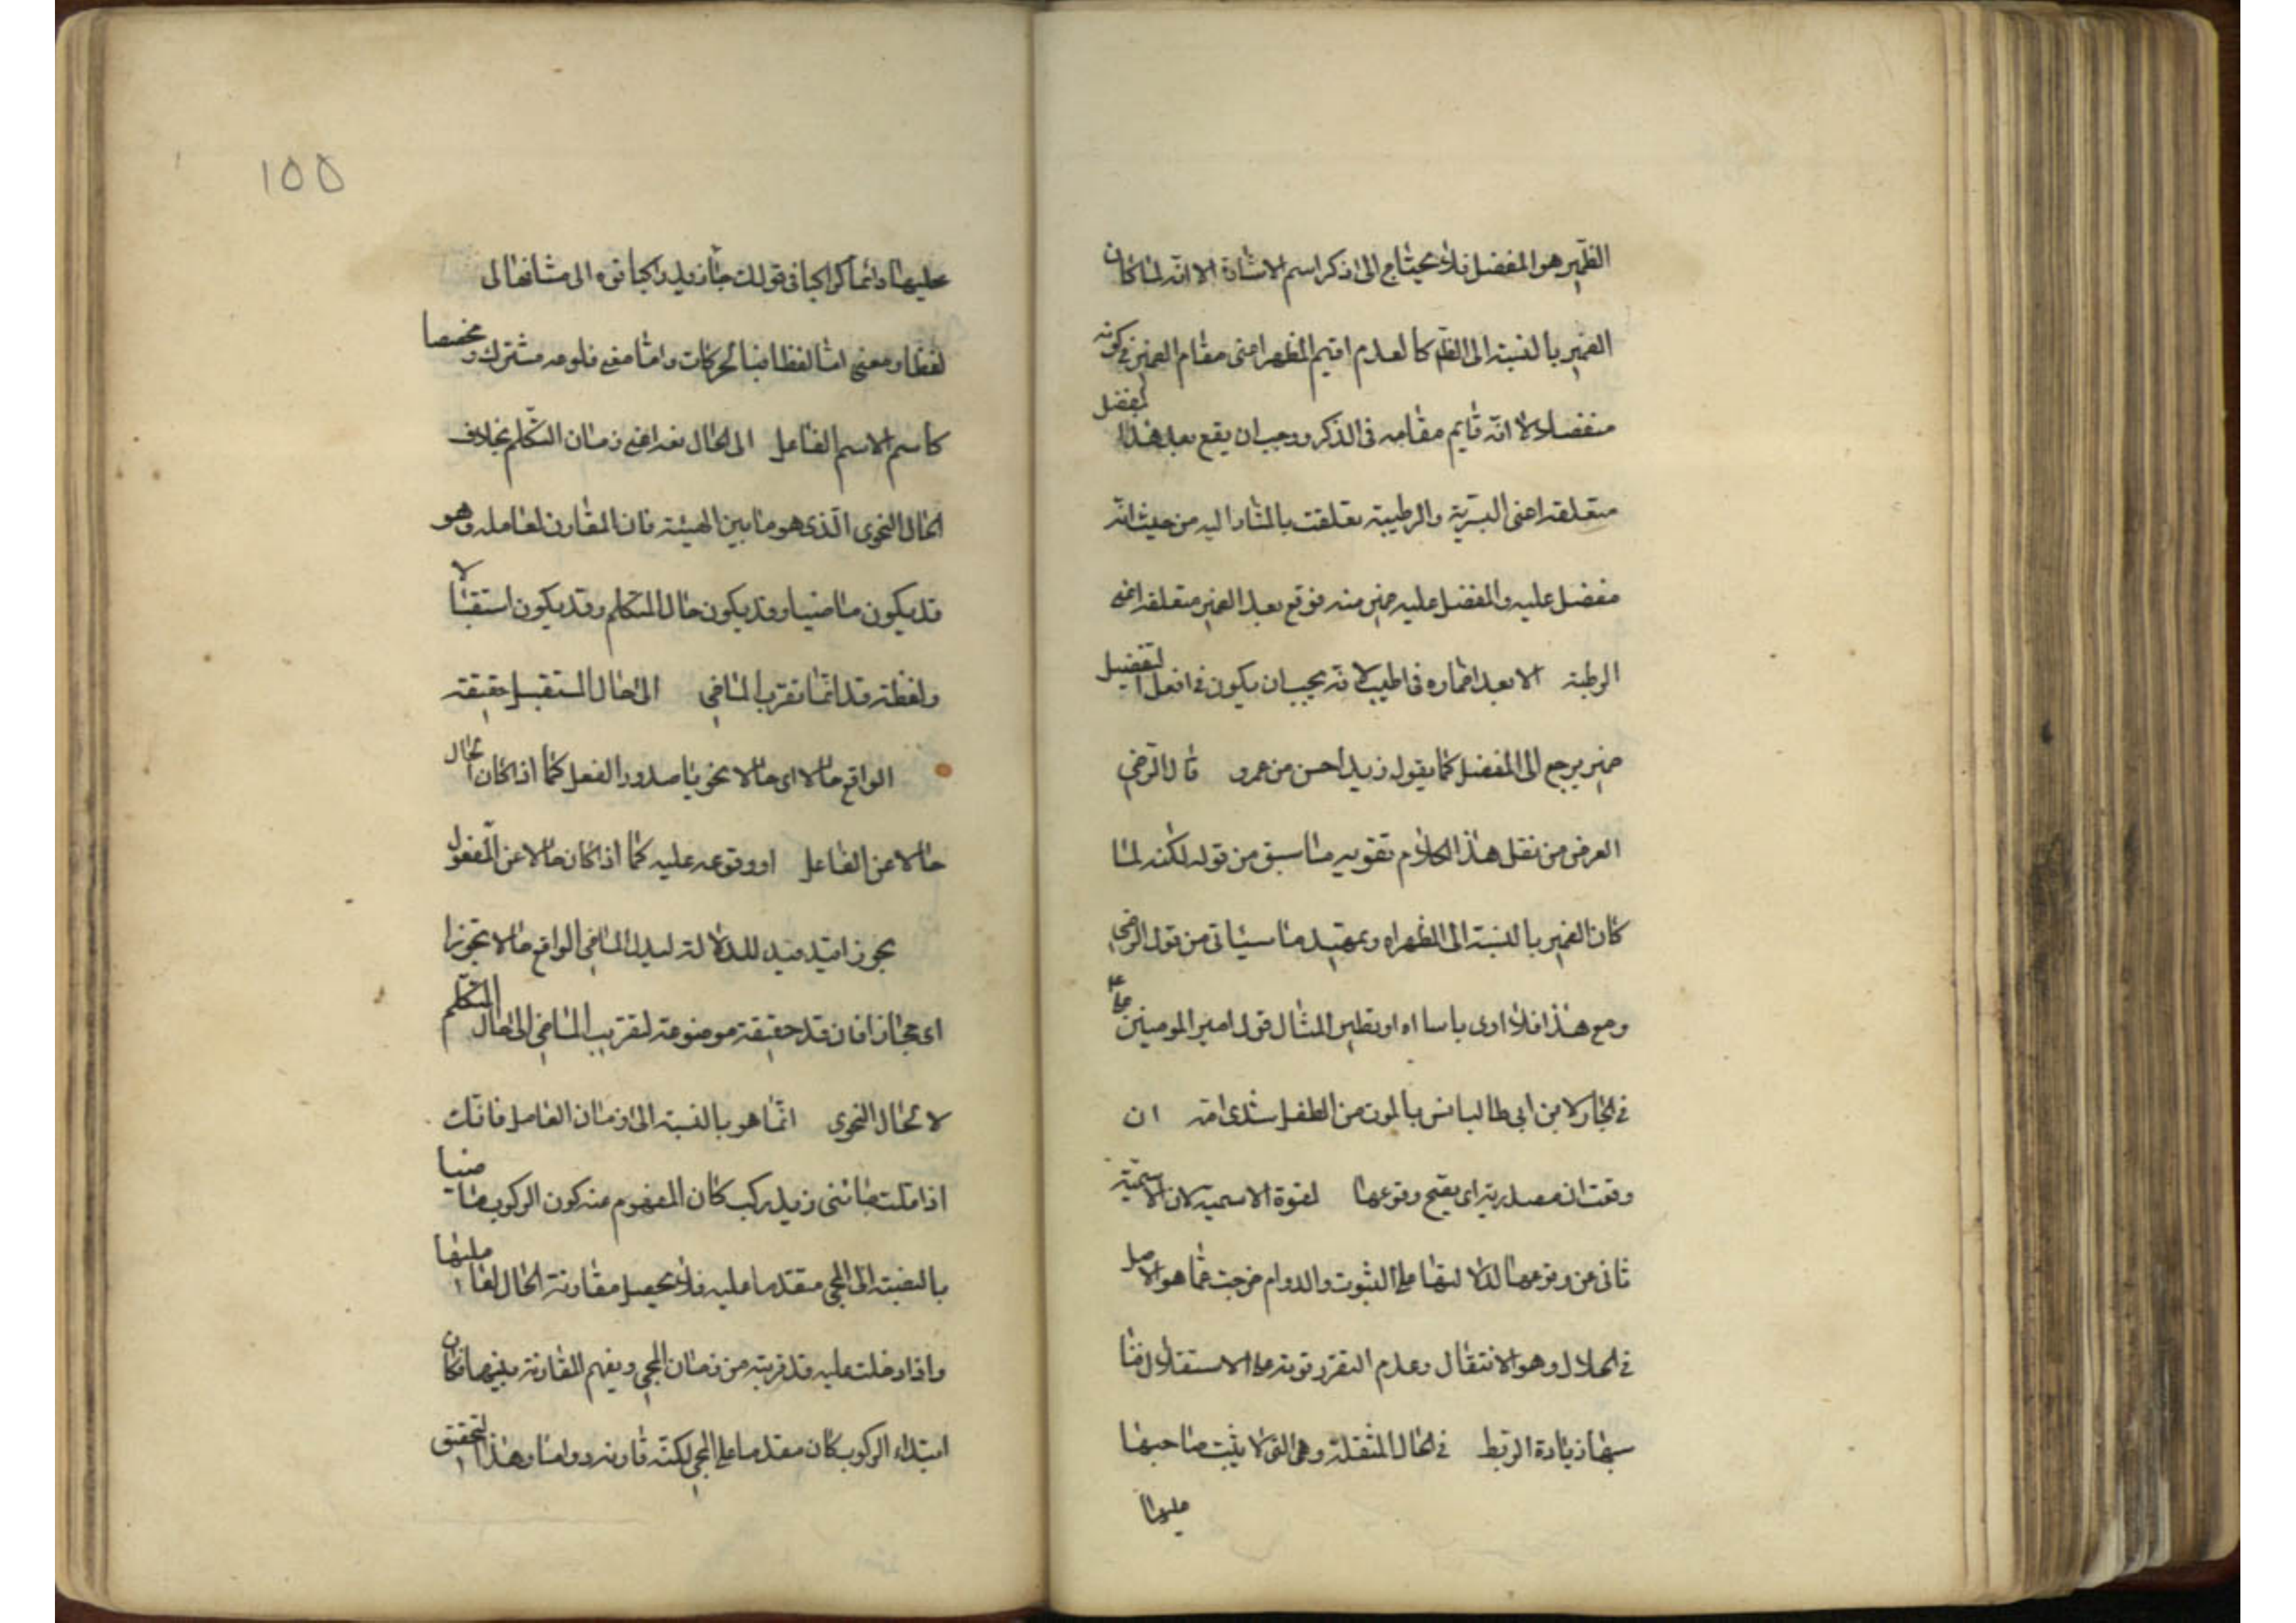 الضمير هو المفضل فلا يحتاج الى ذكر اسم الاشارة الا انه لما كان
الضمير بالنسبة الى الظم كالعدم اقيم المظهر اعنى مقام الضمير فى كونه
منفصلا لانه قايم مقامه فى الذكر ووجب ان يقع بعد هذا المفضل
متعلقه اعنى البسرية والرطبية تعلقت بالمشار اليه من حيث انه
مفضل عليه والمفضل عليه ضمير منه فوقع بعد الضمير متعلقه اعنى
الرطبة الا بعد اضماره فى اطيب لانه يجب ان يكون فى افعل التفضيل
ضمير يرجع الى المفضل كما يقول زيد احسن من عمرو قال الرضى
الغرض من نقل هذا الكلام تقويه ما سبق من قوله لكنه لما
كان الضمير بالنسبة الى المظهر اه وتمهيد ما سياتى من قول الرضى
ومع هذا فلا ارى باسا اه او نظير المثال قول امير المومنين ع
فى لابن ابى طالب انس بالموت من الطفل بثدى امه ان
وقعت ان مصدرية اى يقبح وقوعها لقوة الاسمية لان الاسمية
ثانى عن وقوعها لدلالتها على الثبوت والدوام خرجت عما هو الاصل
فى الحال وهو الانتقال وعدم التقرر قوته على الاستقلال
سبها زيادة الربط فى الحال المنتقلة وهى التى لا يثبت صاحبها
عليها
۱۵۵
عليها دائما كراكبا فى قولك جاء زيد راكبا قوه الى مشابها لى
لفظا ومعنى اما لفظا فبالحركات واما معنى فلوم مشترك و مخصصا
كاسم الاسم الفاعل الى الحال اعنى زمان التكلم بخلاف
الحال النحوى الذى هو ما بين الهيئة فان المقارن لعامله وهو
قد يكون ماضيا وقد يكون حال المتكلم وقد يكون استقبالا
ولفظة قد انما تقرب الماضى الى حال المستقبل حقيقة
الواقع حالا اى حالا نحويا صدور الفعل كما اذا كان الحال
حالا عن الفاعل او وقوعه عليه كما اذا كان حالا عن المفعول
يجوز للدلالة الماضى الواقع حالا تجوزا
اى مجازا فان قد حقيقة موضوعة لتقريب الماضى الى حال المتكلم
لا الحال النحوى انما هو بالنسبة الى زمان العامل فانك
اذا قلت جائنى زيد ركب كان المفهوم منه كون الركوب ماضيا
بالنسبة الى المجى مقدما عليه فلا يحصل مقارنة الحال لعاملها
واذا دخلت عليه قد قربته من زمان المجى ويفهم المقارنة بينهما فكان
ابتداء الركوب كان مقدما على المجى لكنه قارنه دواما وهذا التحقيق